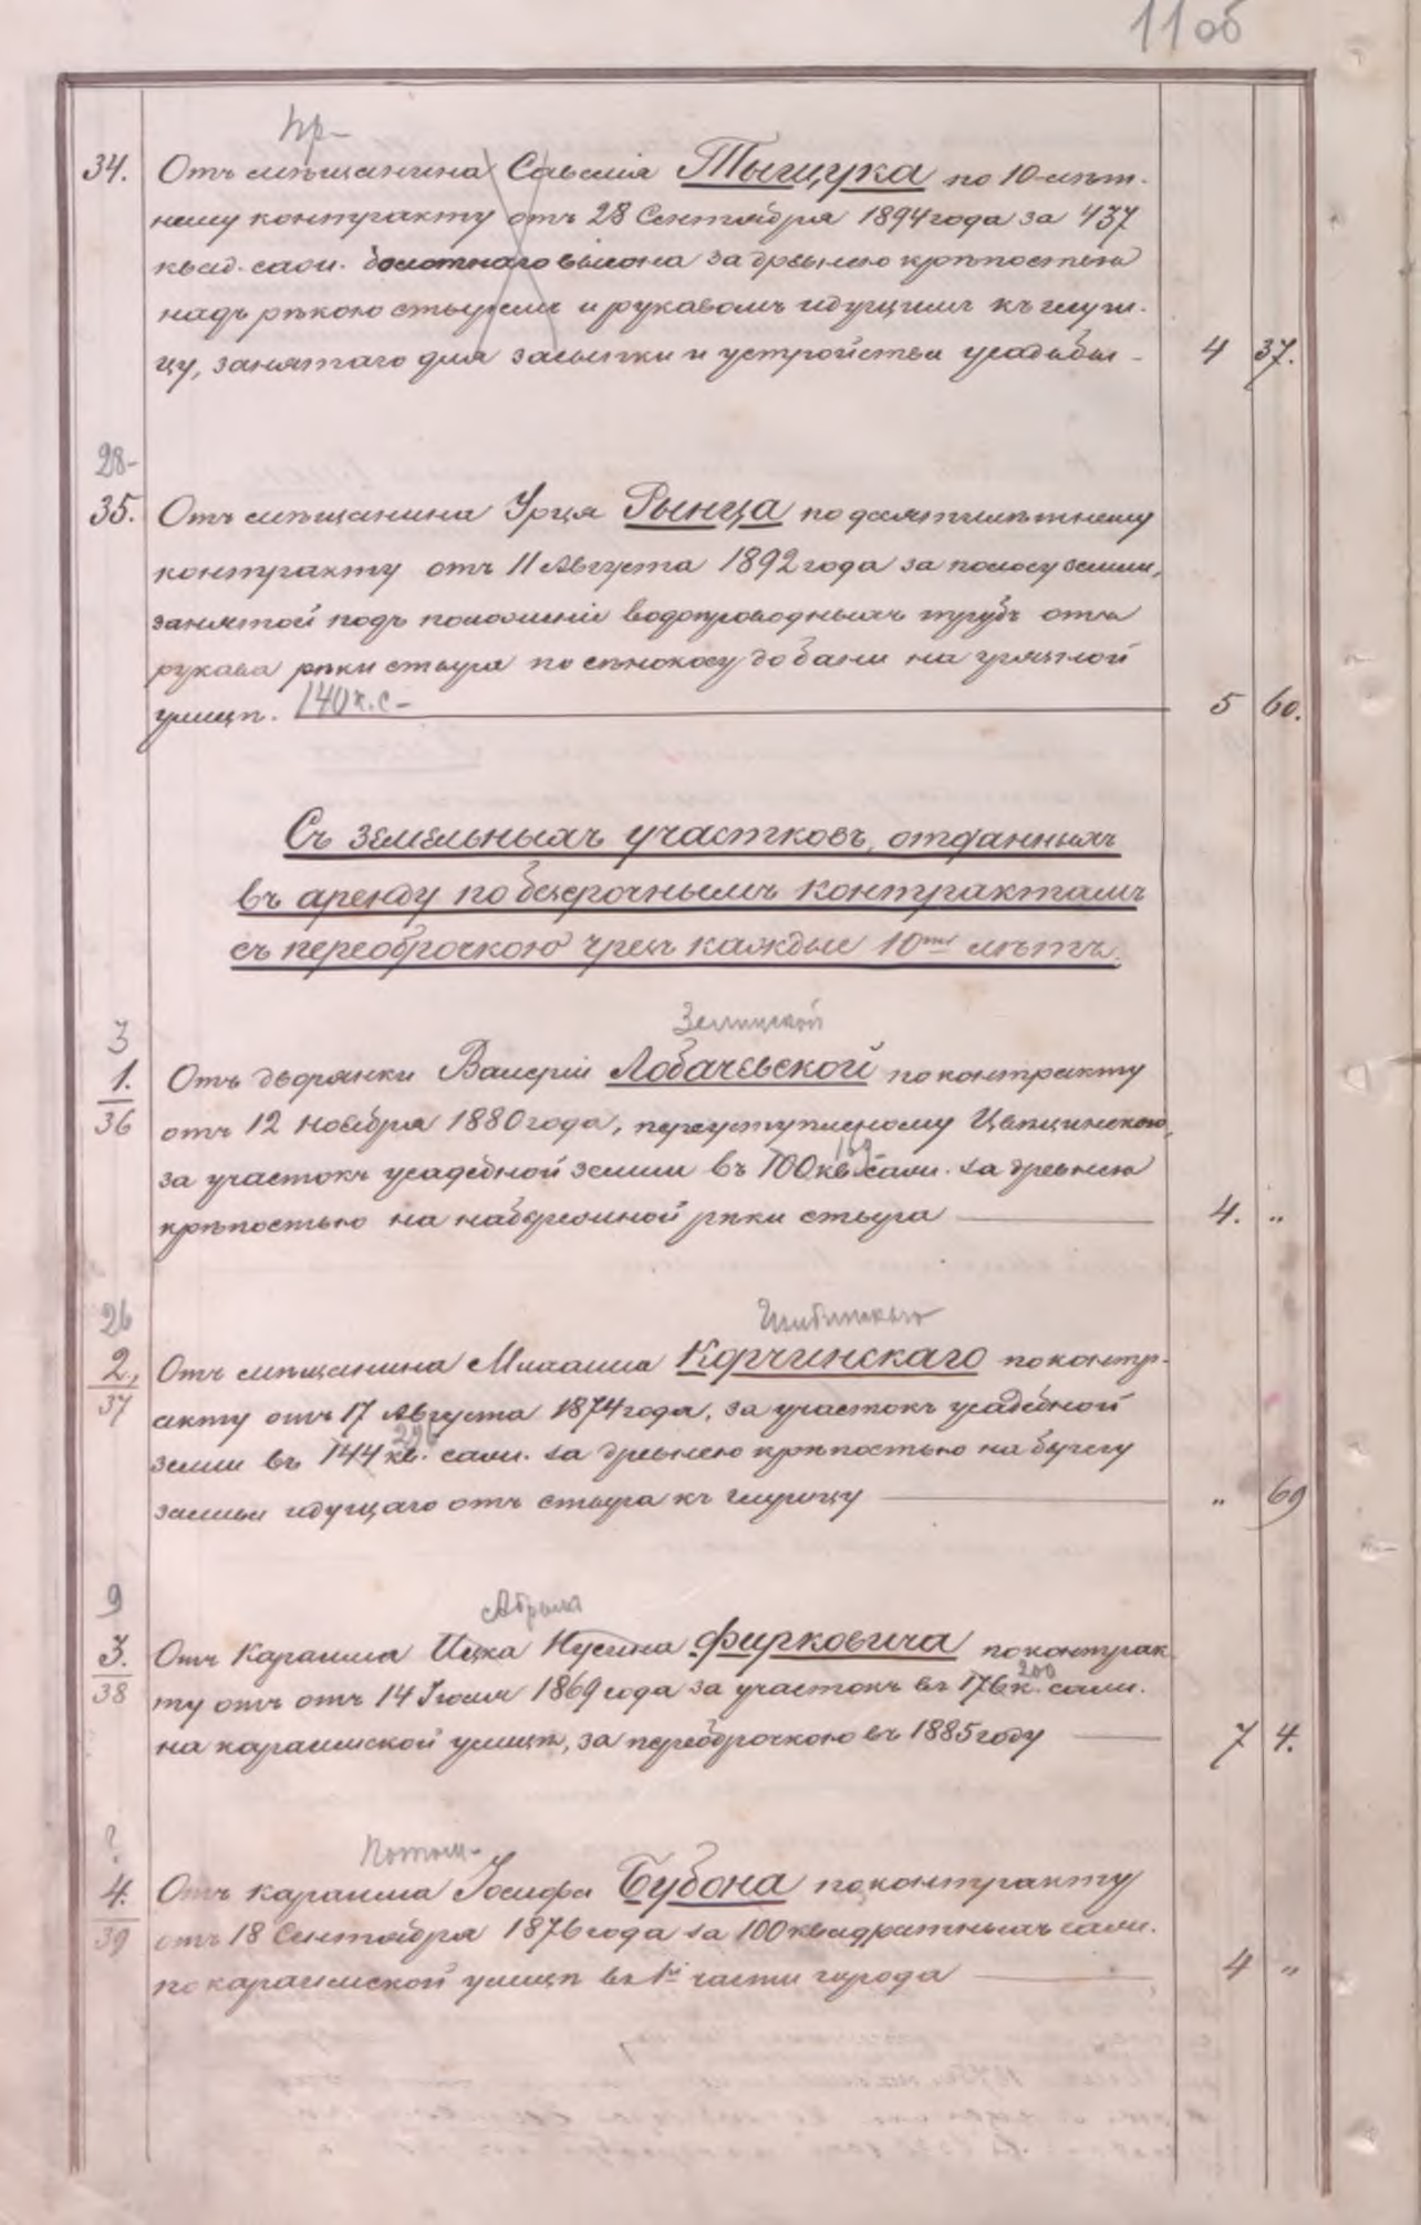 11 об
пр-
34. Отъ мѣщанина Савелія Тыщука по 10-лѣт-
нему контракту отъ 28 Сентября 1894 года за 437
квад. саж. болотнаго за древнею крѣпостью
надъ рѣкою Стыремъ и рукавомъ идущимъ къ глуш-
цу, занятаго для засыпки и устройства усадьбы - 4 37.
28-
35. Отъ мѣщанина Рынца по десятилѣтнему
контракту отъ 11 Августа 1892 года за полосу земли,
занятой подъ положеніе водопроводныхъ трубъ отъ
рукава рѣки Стыря по сѣнокосу до бани на
улицѣ. 140 к.с- 5 60.
Съ земельныхъ участковъ, отданныхъ
въ аренду по безсрочнымъ контрактамъ
съ переоброчкою чрезъ каждые 10ть лѣтъ.
3
1. Отъ дворянки Валеріи Лобачевской по контракту
36 отъ 12 Ноября 1880 года, переуступленному
169
за участокъ усадебной земли въ 100 кв. саж. за древнею
крѣпостью на набережной рѣки Стыра 4. "
26
2. Отъ мѣщанина Михаила Корчинскаго по контр-
37 акту отъ 17 Августа 1874 года, за участокъ усадебной
земли въ 144 кв. саж. за древнею крѣпостью на берегу
залива идущаго отъ Стыра къ глушцу " 69
9
Абрама
3. Отъ Караима Ицка Нусина Фирковича по контрак-
200
38 ту отъ отъ 14 Іюля 1869 года за участокъ въ 176 к. саж.
на караимской улицѣ, за переоброчкою въ 1885 году 7 4.
?
4. Отъ караима Іосифа Бубона по контракту
39 отъ 18 Сентября 1876 года за 100 квадратныхъ саж.
по караимской улицѣ въ 1й части города 4 "